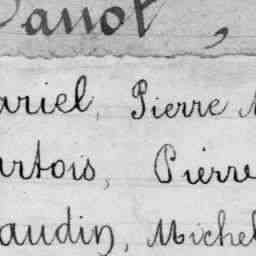 Danot,
ariel, Pierre
artois, Pierre
audin, Michel